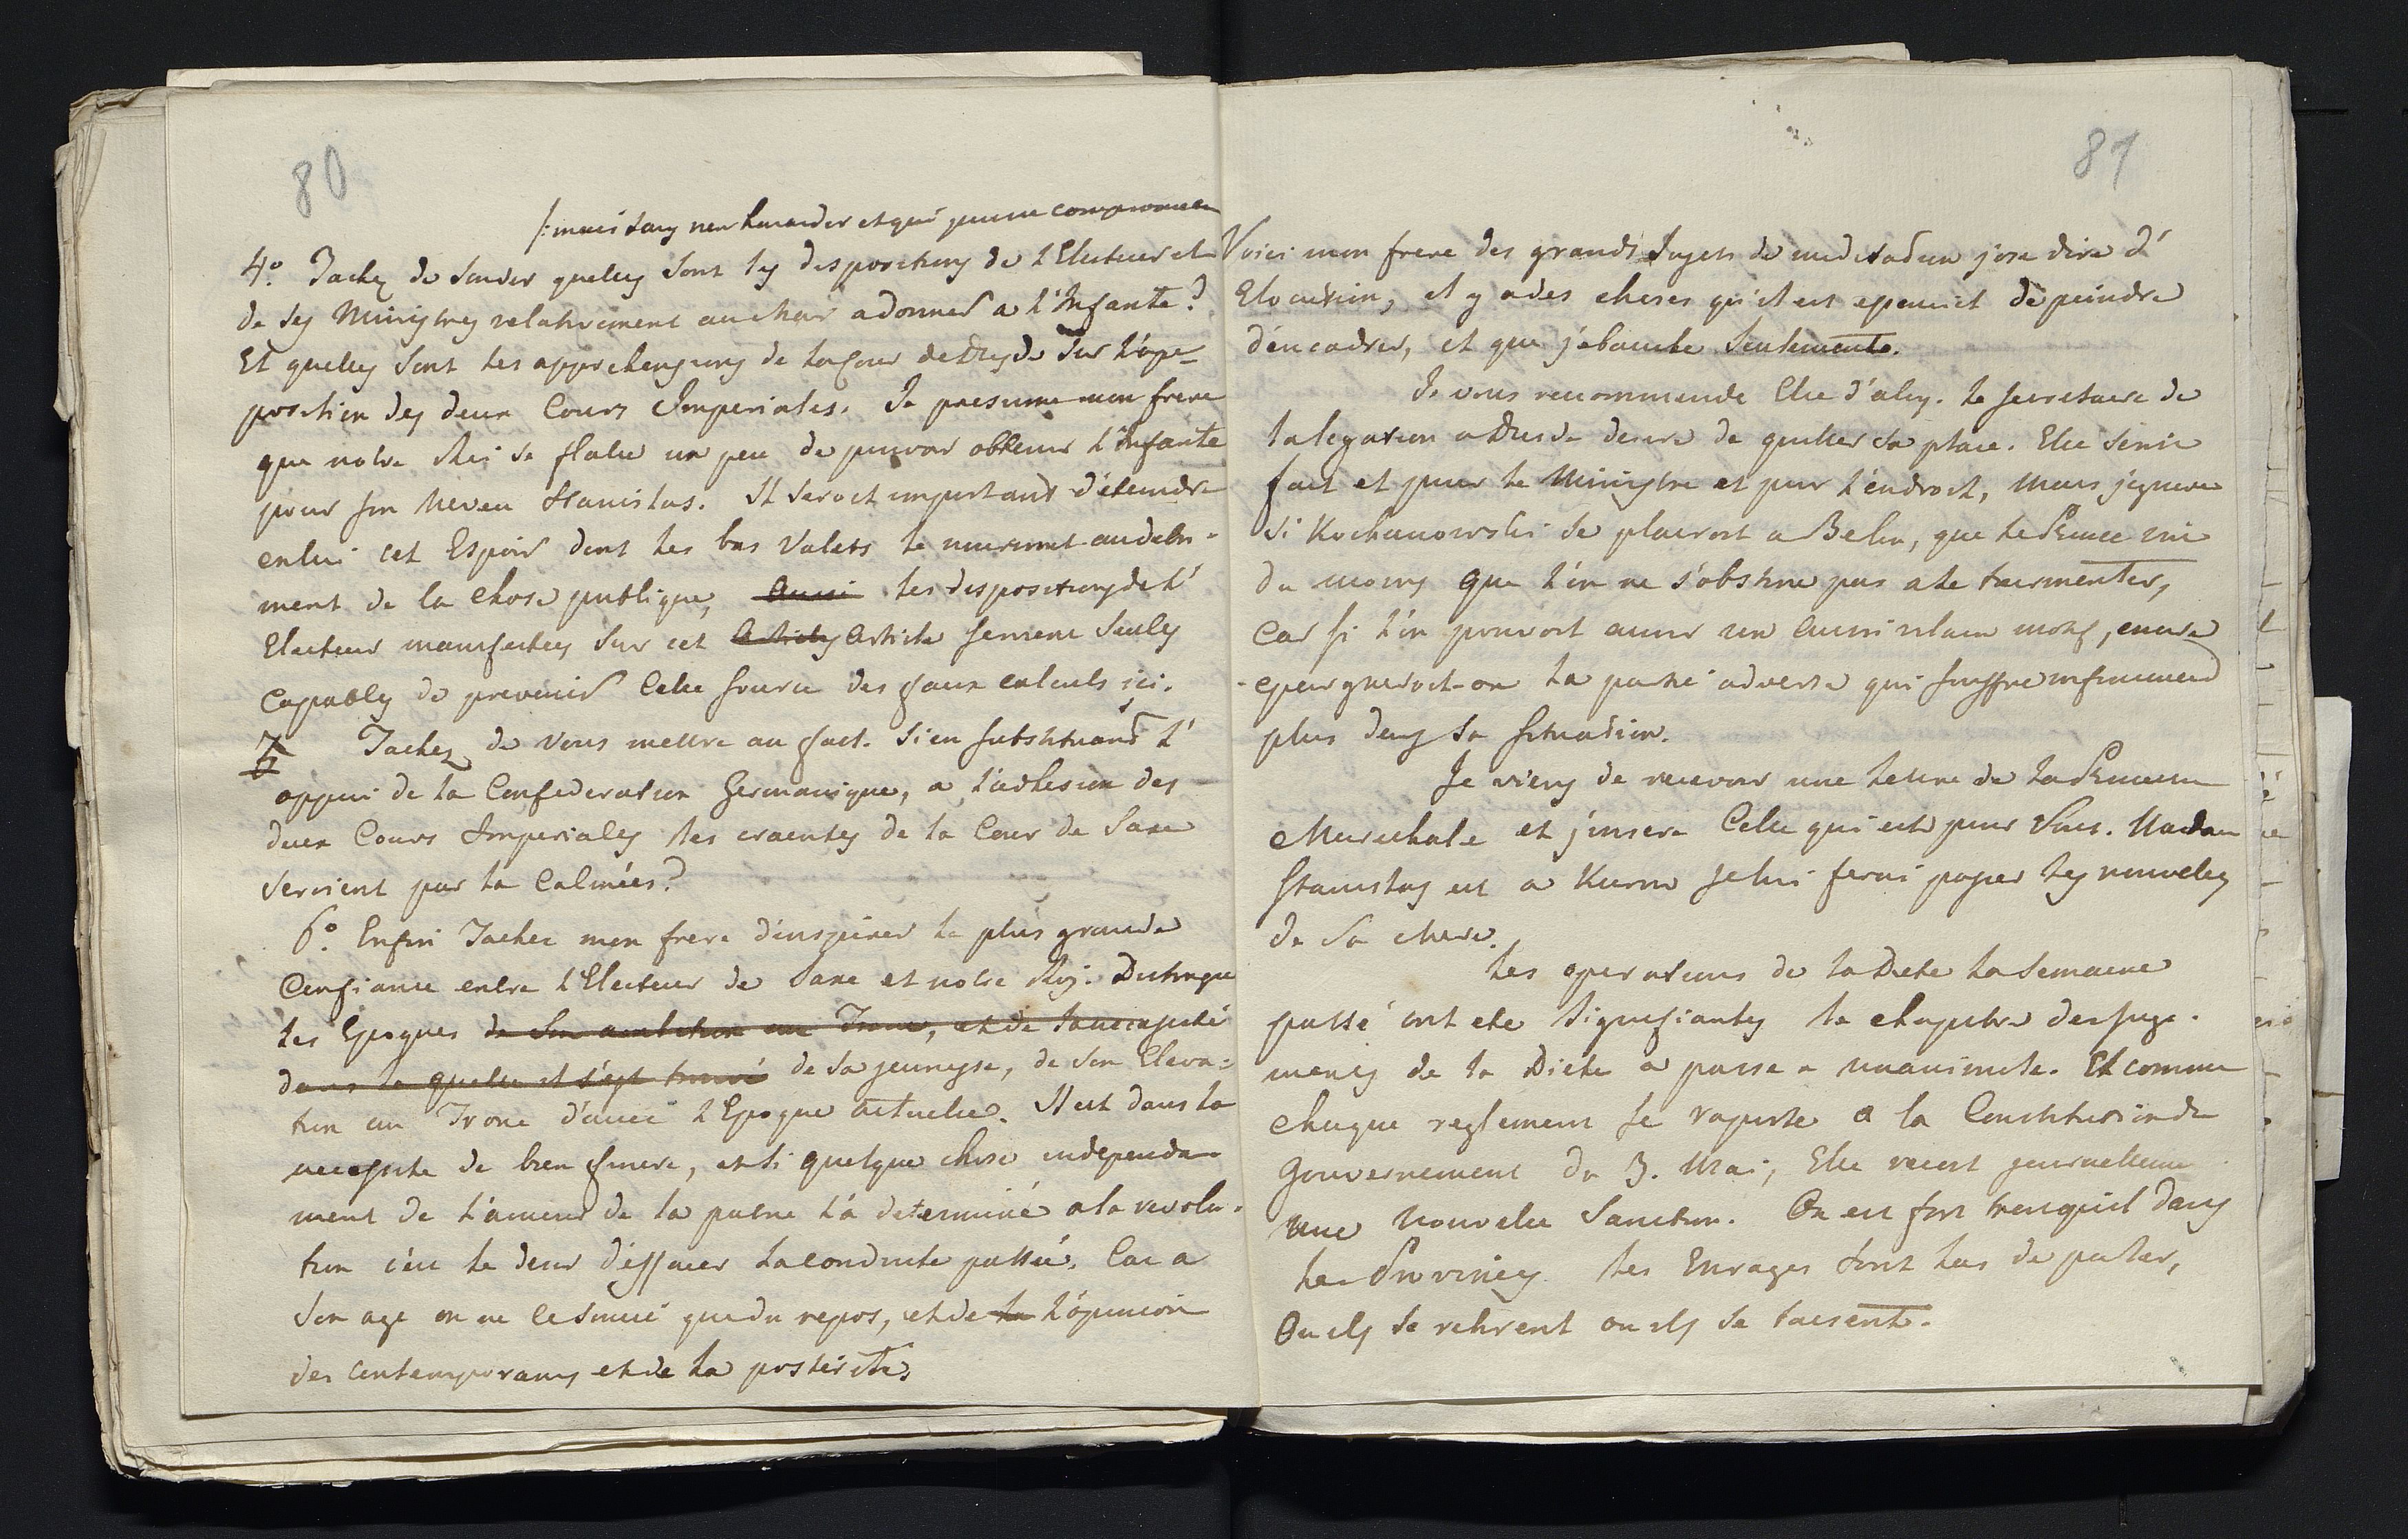 80
/: mais sans rien hazarder et qui puisse compromettre
4º. Tachez de sonder quelles sont les dispositions de l'Electeur et
de ses Ministres relativement au choix a donner a l'Infante?
Et quelles sont les apprehensions de la Cour de Dresde sur l'opo-
position des deux Cours Imperiales. Je presume mon frere
que notre Roi se flatte un peu de pouvoir obtenir l'Infante
pour son Neveu Stanislas. Il seroit important d'eteindre
en lui cet Espoir dont les bas Valets le nourrissent au detri-
ment de la chose publique, Aussi les dispositions de l'
Electeur manifestees sur cet Articles Article seroient seules
Capables de prevenir Cette source des faux calculs ici.
5 Tachez de vous mettre au fait. Si en substituant l'
appui de la Confederation Germanique, a l'adhesion des
deux Cours Imperiales les craintes de la Cour de Saxe
seroient par la Calmées?
6º. Enfin Tachez mon frere d'inspirer la plus grande
Confiance entre l'Electeur de Saxe et notre Roy. Distingue
les Epoques de Son ambition au Trone, et de la necessité
dans la quelle il s'est trouvé de sa jeunesse, de son Eleva=
tion au Trone d'avec l'Epoque actuelle. Il est dans la
necessite de bien finir, et si quelque chose independa-
ment de l'amour de la patrie l'a determiné a la revolu-
tion c'est le desir d'effacer la conduite passée. Car a
son age on ne se soucie que du repos, et de la l'opinion
des contemporains et de la posterité.
81
Voici mon frere des grands Sujets de meditation j'ose dire d'
Elocution, il y a des choses qu'il est permit de peindre
d'encadrer, et que j'ebauche Seulemente.
Je vous recommande Elie d'aloy. le secretaire de
la legation a Dresde desire de quitter sa place. Elle
fait et pour le Ministre et pour l'endroit, Mais j'ignore
si Kochanowski se plairoit a Berlin, que le Prince
du moins que l'on ne s'obstine pas a le tourmenter,
Car si l'on pouvoit avoir un aussi vilain motif, encore
-epargneroit-on la partie adverse qui souffre infiniment
plus dans sa situation.
Je viens de recevoir une lettre de la Princesse
Marechale et j'insere Celle qui est pour Vous. Madame
Stanislas est a Kurow je lui ferai passer les nouvelles
de sa chere.
Les operations de la Diete la Semaine
passé ont ete signifiantes le chapitre des juge-
ments de la Diete a passe a unanimite. Et comme
chaque reglement se raporte a la Constitution de
Gouvernement du 3. Mai, Elle recoit journellement
une nouvelle Sanction. On est fort tranquil dans
les Provinces les Enrages sont las de parler,
Ou ils se retirent ou ils se taisent.